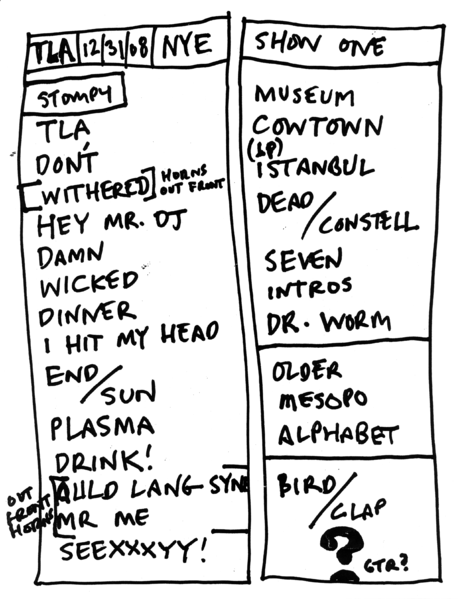 TLA 12/31/08 NYE
STOMPY
TLA
DON'T
[WITHERED] HORNS
OUT FRONT
HEY MR. DJ
DAMN
WICKED
DINNER
I HIT MY HEAD
END/
SUN
PLASMA
DRINK!
OUT FRONT HORNS
[AULD LANG SYNE
MR ME]
SEEXXXYY!
SHOW ONE
MUSEUM
COWTOWN
(SP)
ISTANBUL
DEAD/
CONSTELL
SEVEN
INTROS
DR. WORM
OLDER
MESOPO
ALPHABET
BIRD/
CLAP
?
GTR?